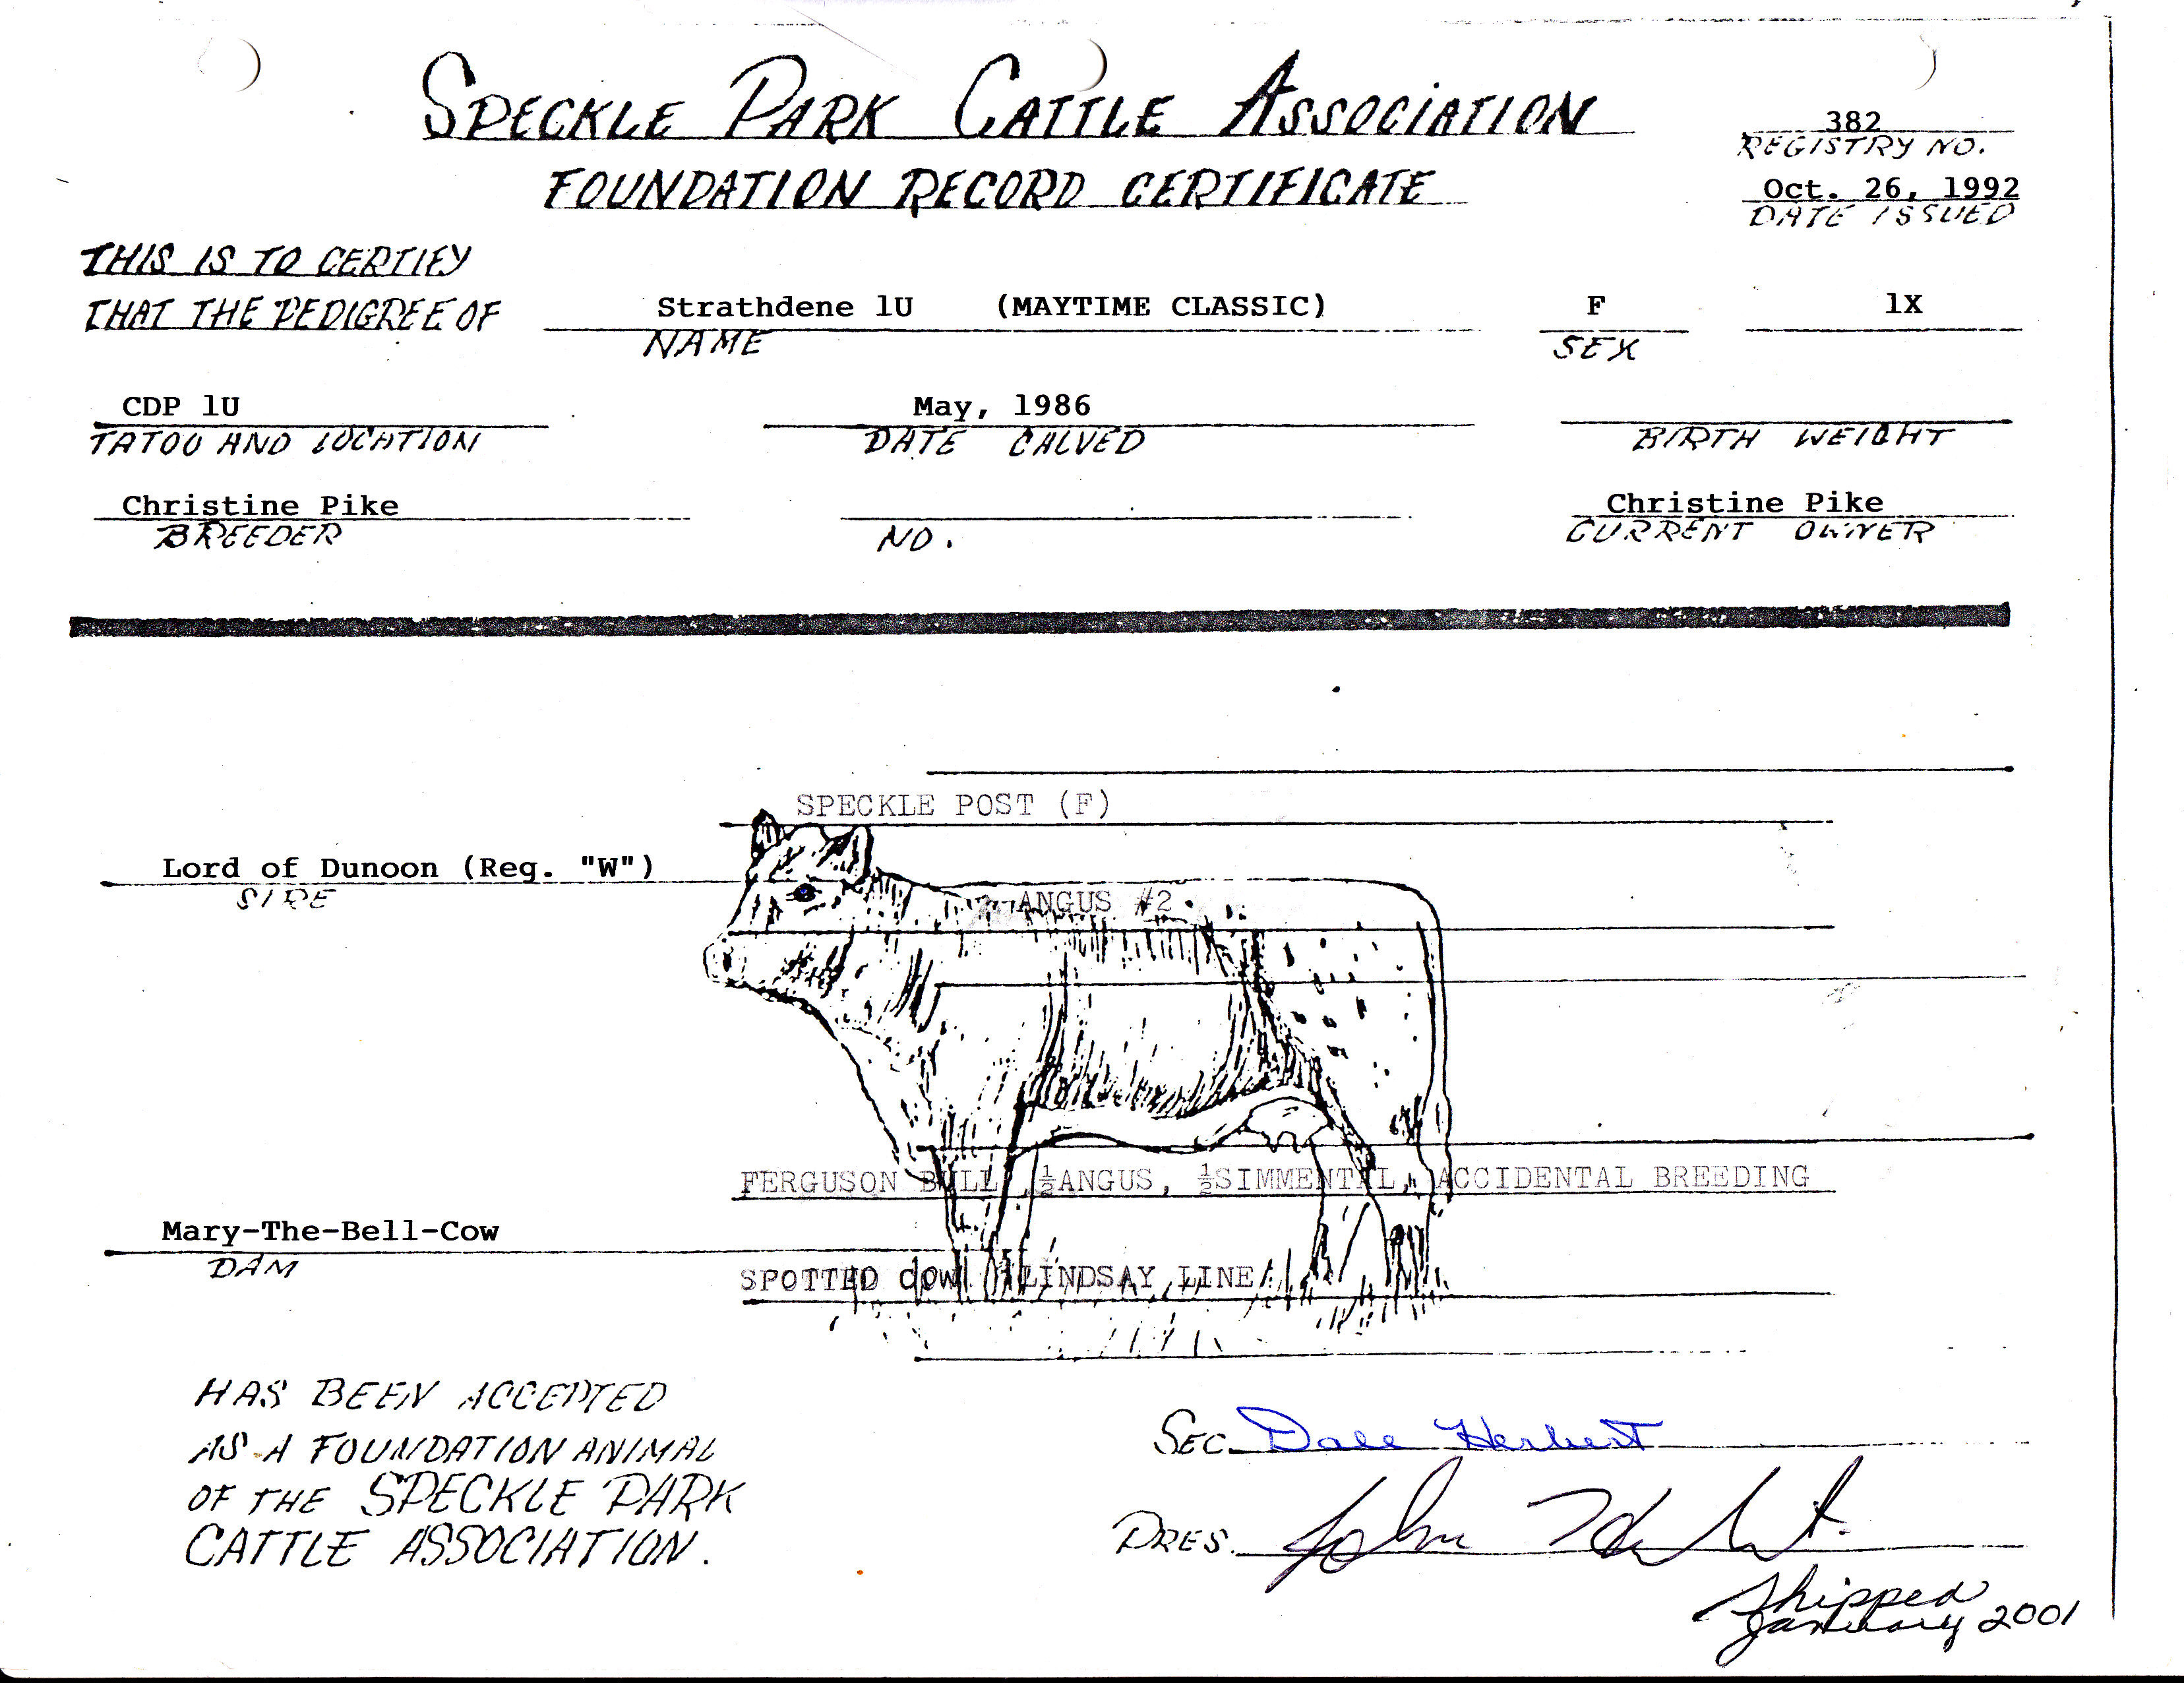 SPECKLE PARK CATTLE ASSOCIATION
382
REGISTRY NO.
FOUNDATION RECORD CERTIFICATE
Oct. 26, 1992
DATE ISSUED
THIS IS TO CERTIFY
THAT THE PEDIGREE OF Strathdene 1U (MAYTIME CLASSIC) F 1X
NAME SEX
CDP 1U May, 1986
TATOO AND LOCATION DATE CALVED BIRTH WEIGHT
Christine Pike Christine Pike
BREEDER NO. CURRENT OWNER
SPECKLE POST (F)
Lord of Dunoon (Reg. "W")
SIRE
ANGUS #2
FERGUSON BULL, ½ANGUS, ½SIMMENTAL, ACCIDENTAL BREEDING
Mary-The-Bell-Cow
DAM
SPOTTED COW LINDSAY LINE
HAS BEEN ACCEPTED
AS A FOUNDATION ANIMAL
OF THE SPECKLE PARK
CATTLE ASSOCIATION.
SEC. Dale Herbert
PRES. John
Shipped
January 2001